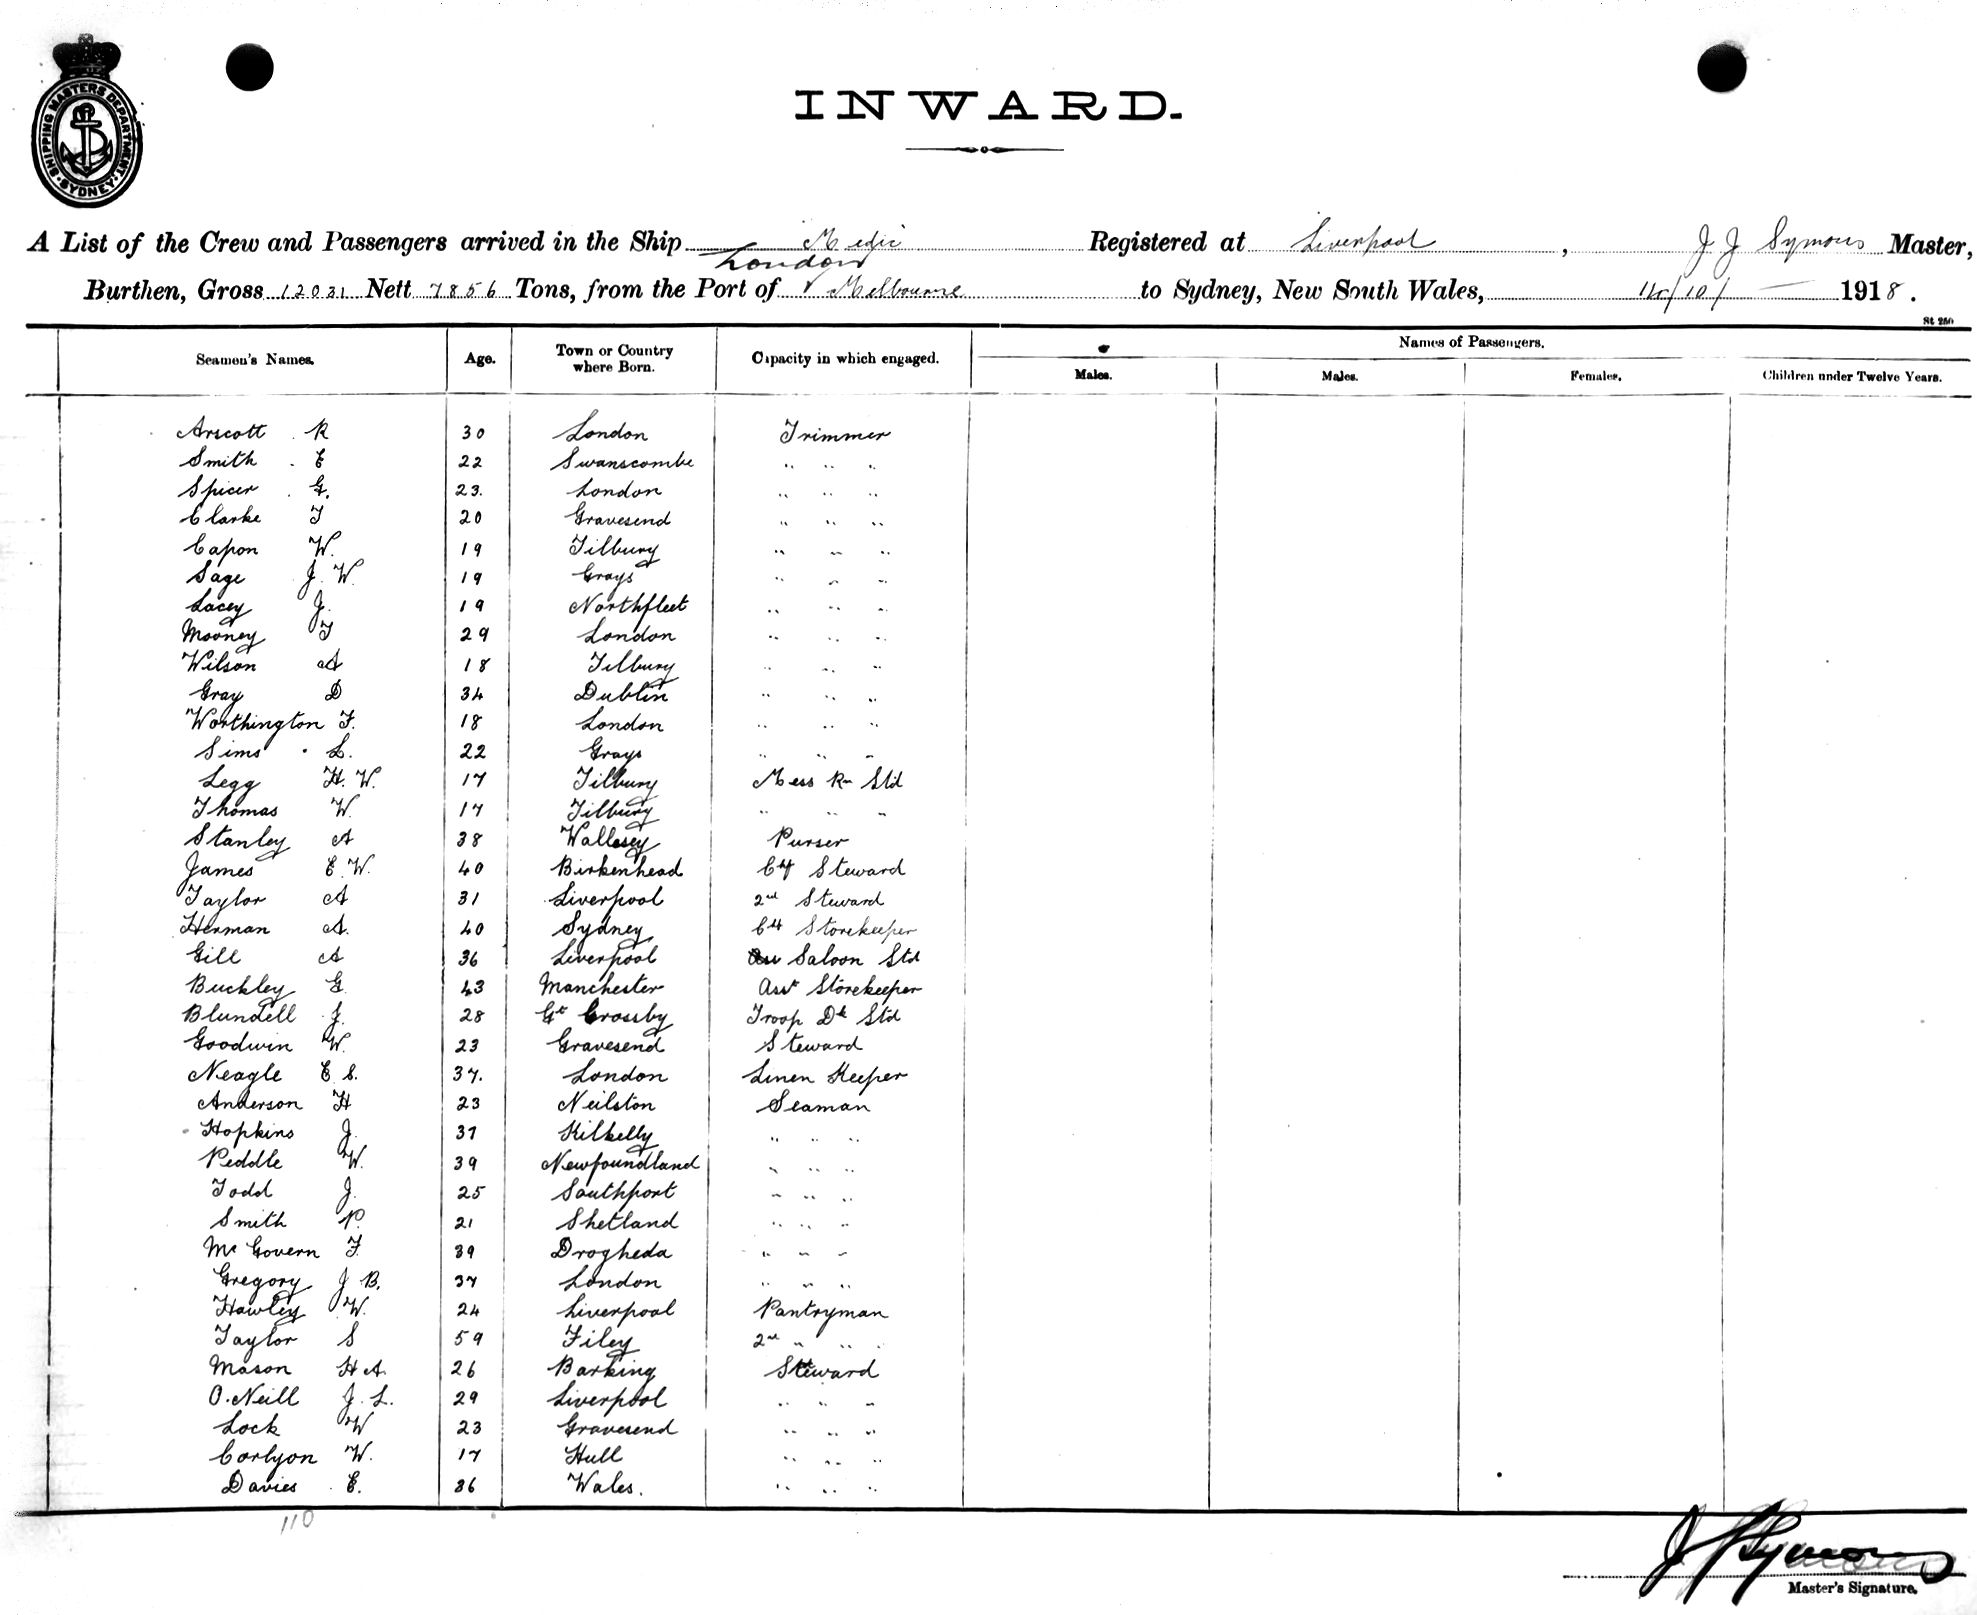 SHIPPING MASTERS DEPARTMENT. SYDNEY
INWARD.
A List of the Crew and Passengers arrived in the Ship Medic Registered at Liverpool, J J Symons Master,
London
Burthen, Gross 12031 Nett 7856 Tons, from the Port of Melbourne to Sydney, New South Wales, /10/ 1918.
St 250
Seamen's Names. Age. Town or Country where Born. Capacity in which engaged. Names of Passengers.
Males. Males. Females. Children under Twelve Years.
Arscott R 30 London Trimmer
Smith E 22 Swanscombe " " "
Spicer G. 23. London " " "
Clarke T 20 Gravesend " " "
Capon W. 19 Tilbury " " "
Sage J. W. 19 Grays " " "
Lacey J. 19 Northfleet " " "
Mooney T 29 London " " "
Wilson A 18 Tilbury " " "
Gray D 34 Dublin " " "
Worthington F. 18 London " " "
Sims L. 22 Grays " " "
Legg H. W. 17 Tilbury Mess Rm Std
Thomas W. 17 Tilbury " " "
Stanley A 38 Wallasey Purser
James E. W. 40 Birkenhead Chf Steward
Taylor A 31 Liverpool 2nd Steward
Herman A. 40 Sydney Chf Storekeeper
Gill A 36 Liverpool Saloon Std
Buckley G. 43 Manchester Asst Storekeeper
Blundell J. 28 Gt Crossby Troop Dk Std
Goodwin W. 23 Gravesend Steward
Neagle E S. 37. London Linen Keeper
Anderson H 23 Neilston Seaman
Hopkins J. 37 Kilkelly " " "
Peddle W. 39 Newfoundland " " "
Todd J. 25 Southport " " "
Smith P. 21 Shetland " " "
McGovern F. 39 Drogheda " " "
Gregory J B. 37 London " " "
Hawley W. 24 Liverpool Pantryman
Taylor S 59 Filey 2nd " "
Mason H A. 26 Barking Steward
O'Neill J. L. 29 Liverpool " " "
Lock W 23 Gravesend " " "
Corlyon W. 17 Hull " " "
Davies E. 36 Wales. " " "
110
J J Symons
Master's Signature.